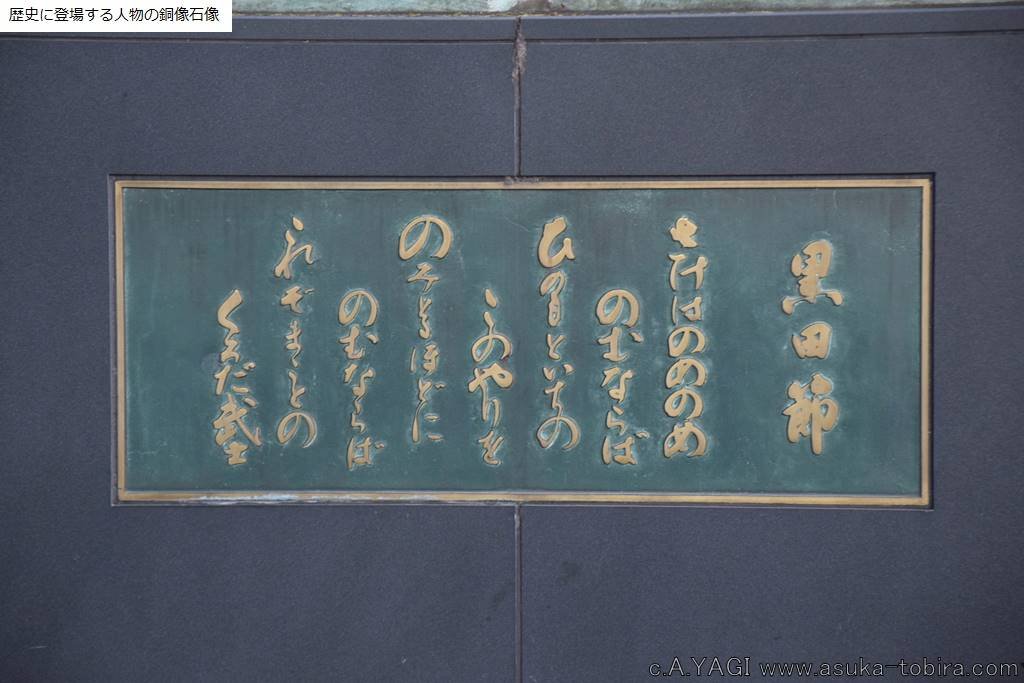 歴史に登場する人物の銅像石像
黒田節
さけはのめのめ
のむならば
ひの もといちの
このやりを
のみとるほどに
のむならば
これぞまことの
くろだ武士
c.A.YAGI www.asuka-tobira.com